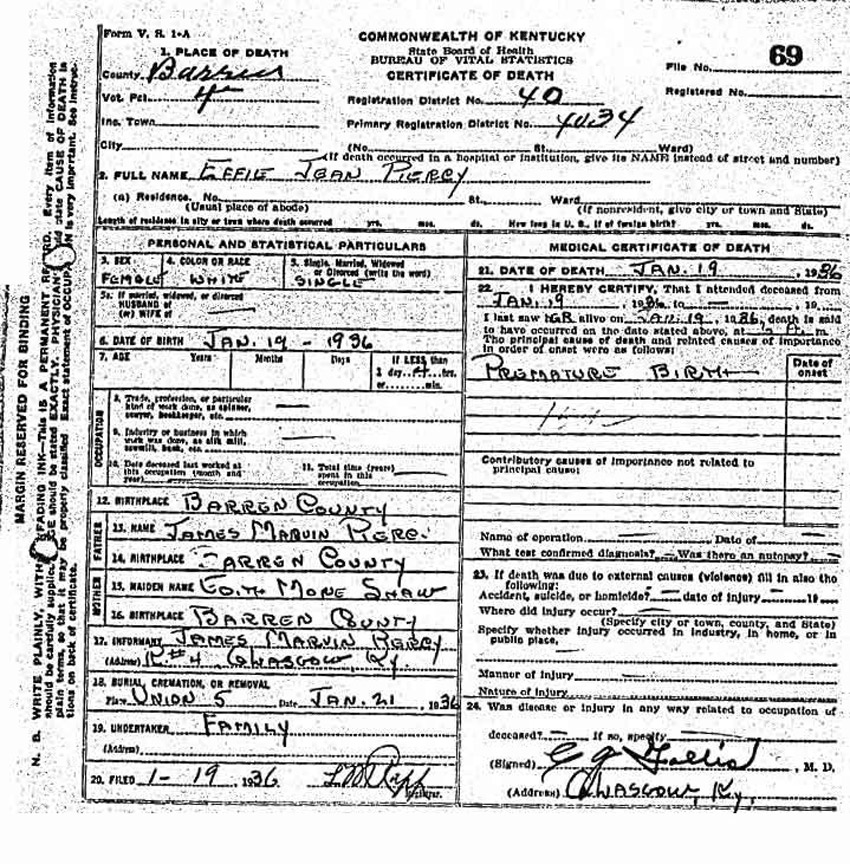 Form V. S. 1-A
COMMONWEALTH OF KENTUCKY
State Board of Health
BUREAU OF VITAL STATISTICS
CERTIFICATE OF DEATH
File No. 69
Registered No.
1. PLACE OF DEATH
County Barren
Vot. Pct. 4
Registration District No. 40
Inc. Town
Primary Registration District No. 4034
City (No. St. Ward)
(If death occurred in a hospital or institution, give its NAME instead of street and number)
2. FULL NAME EFFIE JEAN PIERCY
(a) Residence. No. St. Ward
(Usual place of abode) (If nonresident, give city or town and State)
Length of residence in city or town where death occurred yrs. mos. ds. How long in U. S., if of foreign birth? yrs. mos. ds.
PERSONAL AND STATISTICAL PARTICULARS
3. SEX 4. COLOR OR RACE 5. Single, Married, Widowed
or Divorced (write the word)
FEMALE WHITE SINGLE
5a. If married, widowed, or divorced
HUSBAND of
(or) WIFE of
6. DATE OF BIRTH JAN. 19 - 1936
7. AGE Years Months Days If LESS than
1 day, hrs.
or min.
OCCUPATION
8. Trade, profession, or particular
kind of work done, as spinner,
sawyer, bookkeeper, etc.
9. Industry or business in which
work was done, as silk mill,
sawmill, bank, etc.
10. Date deceased last worked at
this occupation (month and
year)
11. Total time (years)
spent in this
occupation
12. BIRTHPLACE BARREN COUNTY
FATHER
13. NAME JAMES MARVIN PIERCY
14. BIRTHPLACE BARREN COUNTY
MOTHER
15. MAIDEN NAME EDITH MONE SHAW
16. BIRTHPLACE BARREN COUNTY
17. INFORMANT JAMES MARVIN PIERCY
(Address) R#4 GLASGOW, KY.
18. BURIAL, CREMATION, OR REMOVAL
Place UNION 5 Date JAN. 21, 1936
19. UNDERTAKER FAMILY
(Address)
20. FILED 1-19 1936
Registrar.
MEDICAL CERTIFICATE OF DEATH
21. DATE OF DEATH JAN. 19, 1936
22. I HEREBY CERTIFY, That I attended deceased from
JAN. 19, 1936 to , 19
I last saw hER alive on JAN. 19, 1936, death is said
to have occurred on the date stated above, at m.
The principal cause of death and related causes of importance
in order of onset were as follows:
Date of
onset
PREMATURE BIRTH
Contributory causes of importance not related to
principal cause:
Name of operation Date of
What test confirmed diagnosis? Was there an autopsy?
23. If death was due to external causes (violence) fill in also the
following:
Accident, suicide, or homicide? date of injury 19
Where did injury occur?
(Specify city or town, county, and State)
Specify whether injury occurred in industry, in home, or in
public place.
Manner of injury
Nature of injury
24. Was disease or injury in any way related to occupation of
deceased? If no, specify
(Signed) , M. D.
(Address) GLASGOW, KY.
MARGIN RESERVED FOR BINDING
N. B. WRITE PLAINLY, WITH FADING INK—This IS A PERMANENT RECORD. Every item of information
should be carefully supplied. AGE should be stated EXACTLY. PHYSICIANS should state CAUSE OF DEATH in
plain terms, so that it may be properly classified. Exact statement of OCCUPATION is very important. See instruc-
tions on back of certificate.